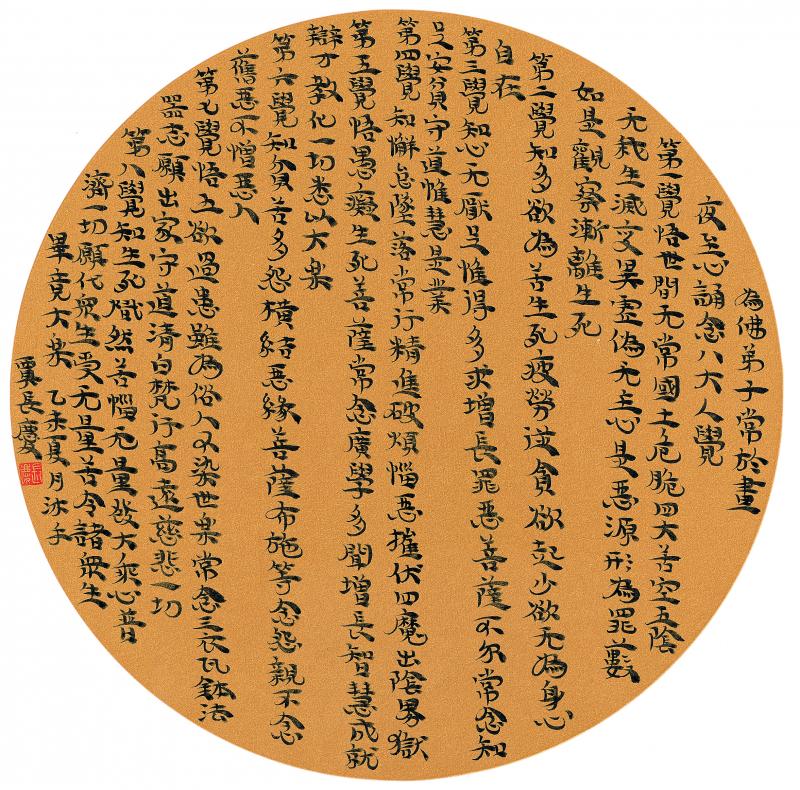 為佛弟子常於晝
夜至心誦念八大人覺
第一覺悟世間无常國土危脆四大苦空五陰
无我生滅变異虛偽无主心是惡源形為罪藪
如是觀察漸離生死
第二覺知多欲為苦生死疲勞從貪欲起少欲无為身心
自在
第三覺知心无厭足惟得多求增長罪惡菩薩不尔常念知
足安貧守道惟慧是業
第四覺知懈怠墜落常行精進破煩惱惡摧伏四魔出陰界獄
第五覺悟愚癡生死菩薩常念廣學多聞增長智慧成就
辯才教化一切悉以大楽
第六覺知貧苦多怨橫結惡緣菩薩布施等念怨親不念
舊惡不憎惡人
第七覺悟五欲過患雖為俗人不染世楽常念三衣瓦鉢法
器志願出家守道清白梵行高遠慈悲一切
第八覺知生死熾然苦惱无量發大乘心普
濟一切願代眾生受无量苦令諸眾生
畢竟大楽 乙未夏月沐手
賈長慶